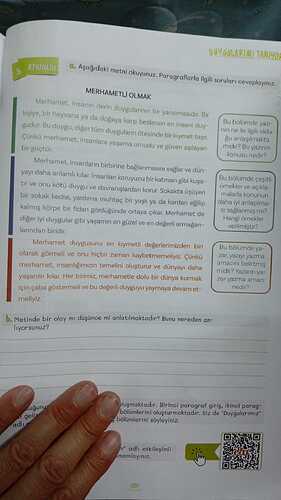 DUYGULARIMI TANIYOR
5. ETKİNLİK
a. Aşağıdaki metni okuyunuz. Paragraflarla ilgili soruları cevaplayınız.
MERHAMETLİ OLMAK
Merhamet, insanın derin duygularının bir yansımasıdır. Bir
kişiye, bir hayvana ya da doğaya karşı beslenen en insani duy-
gudur. Bu duygu, diğer tüm duyguların ötesinde bir kıymet taşır.
Çünkü merhamet, insanlara yaşama umudu ve güven aşılayan
bir güçtür.
Merhamet, insanların birbirine bağlanmasını sağlar ve dün-
yayı daha anlamlı kılar. İnsanları koruyan bir kalkan gibi kuşa-
tır ve onu kötü duygu ve davranışlardan korur. Sokakta üşüyen
bir sokak kedisi, yardıma muhtaç bir yaşlı ya da kardan eğilip
kalmış körpe bir fidan gördüğünde ortaya çıkar. Merhamet de
diğer iyi duygular gibi yaşamın en güzel ve en değerli armağan-
larından biridir.
Merhamet duygusunu en kıymetli değerlerimizden biri
olarak görmeli ve onu hiçbir zaman kaybetmemeliyiz. Çünkü
merhamet, insanlığımızın temelini oluşturur ve dünyayı daha
yaşanılır kılar. Her birimiz, merhametle dolu bir dünya kurmak
için çaba göstermeli ve bu değerli duyguyu yaşamaya devam et-
meliyiz.
Bu bölümde yazı-
nın ne ile ilgili olduğu
anlaşılmakta
mıdır? Bu yazının
konusu nedir?
Bu bölümde çeşitli
örnekler ve açıkla-
malarla konunun
daha iyi anlaşılma-
sı sağlanmış mı?
Hangi örnekler
verilmiştir?
Bu bölümde ya-
zar, yazıyı yazma
amacını belirtmiş
midir? Yazarın ya-
zıyı yazma amacı
nedir?
b. Metinde bir olay mı düşünce mi anlatılmaktadır? Bunu nereden an-
lıyorsunuz?
oluşmaktadır. Birinci paragraf giriş, ikinci parag-
bölümlerini oluşturmaktadır. Siz de "Duygularımız"
bölümlerini söyleyiniz.
adlı etkileşimli